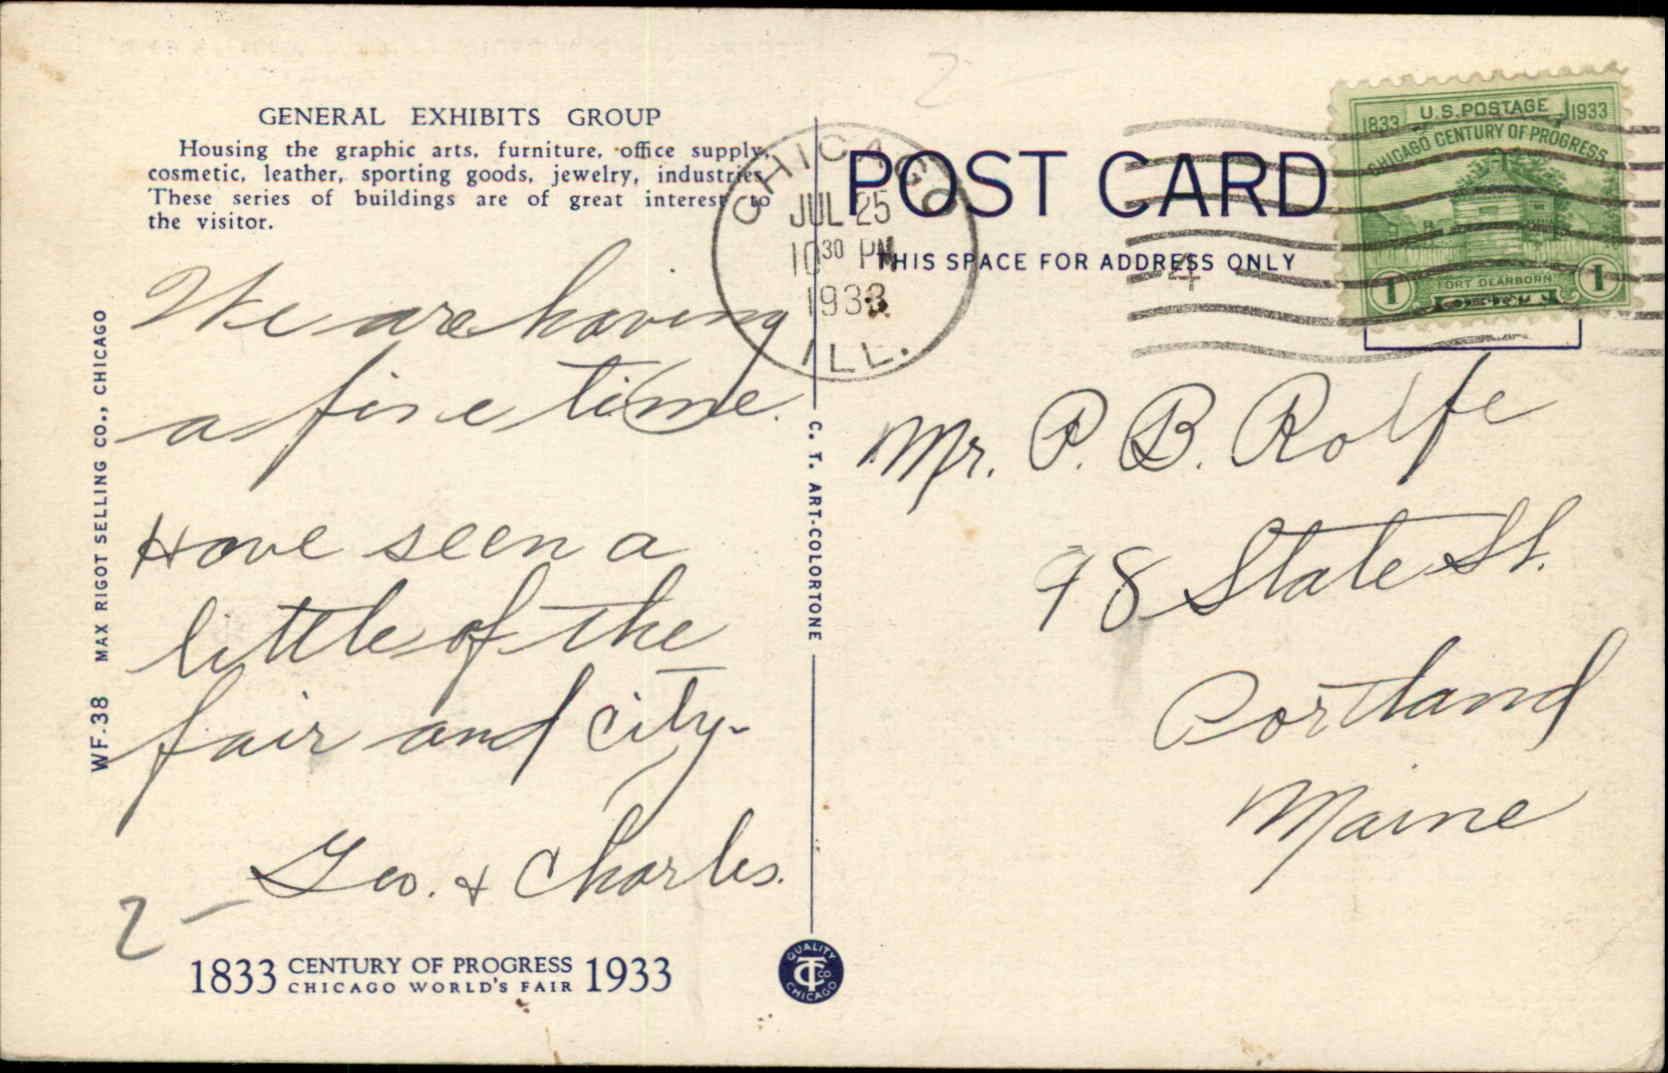 GENERAL EXHIBITS GROUP
Housing the graphic arts, furniture, office supply,
cosmetic, leather, sporting goods, jewelry, industries.
These series of buildings are of great interest to
the visitor.
We are having
a fine time.
Have seen a
little of the
fair and city-
Geo. + Charles.
2 -
1833 CENTURY OF PROGRESS 1933
CHICAGO WORLD'S FAIR
WF.38 MAX RIGOT SELLING CO., CHICAGO
C. T. ART-COLORTONE
QUALITY
CT CO
CHICAGO
2 -
CHICAGO
JUL 25
10 30 PM
1933
ILL.
POST CARD
THIS SPACE FOR ADDRESS ONLY
4
U.S. POSTAGE
1833 1933
CHICAGO CENTURY OF PROGRESS
FORT DEARBORN
1 1
Mr. P. B. Rolfe
98 State St.
Portland
Maine